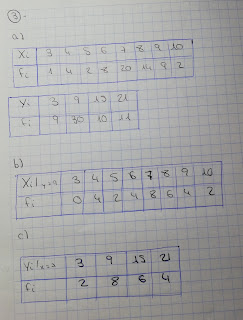 ③-
a)
Xi 3 4 5 6 7 8 9 10
fi 1 4 2 8 20 14 9 2
Yi 3 9 15 21
fi 9 30 10 11
b)
Xi/y=9 3 4 5 6 7 8 9 10
fi 0 4 2 4 8 6 4 2
c)
Yi/x=7 3 9 15 21
fi 2 8 6 4